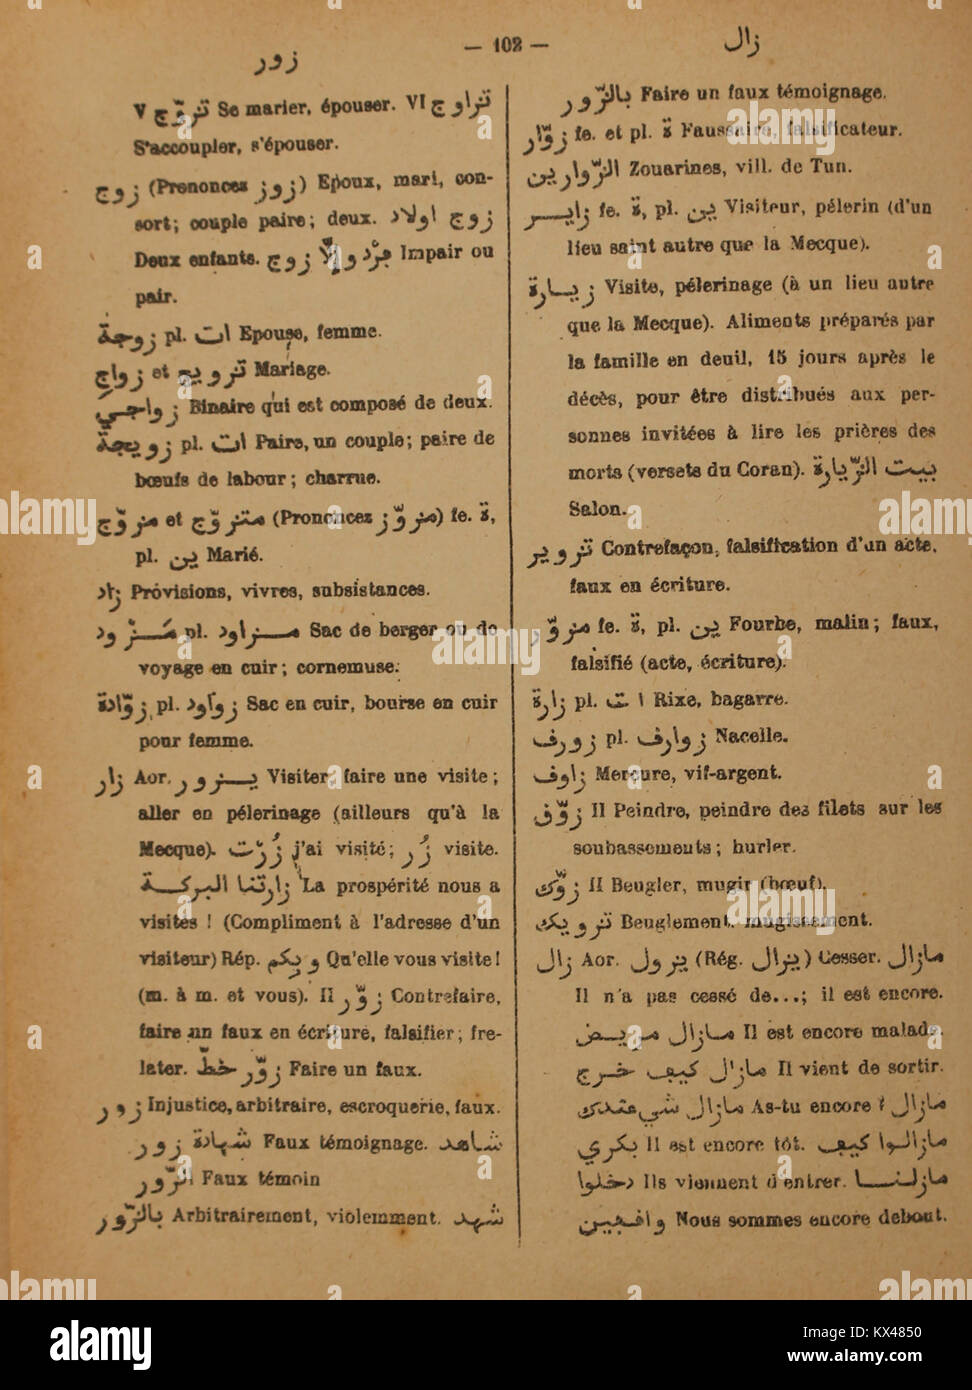 زور
— 102 —
زال
V تزوّج Se marier, épouser. VI تزاوج
S'accoupler, s'épouser.
زوج (Prononcez زوز) Epoux, mari, con-
sort; couple paire; deux. زوج اولاد
Deux enfants. فرْد وإلّا زوج Impair ou
pair.
زوجة pl. ات Epouse, femme.
زواج et تزويج Mariage.
زواجي Binaire qui est composé de deux.
زويجة pl. ات Paire, un couple; paire de
bœufs de labour; charrue.
مزوّج et متزوّج (Prononcez مزوّز) fe. ة,
pl. ين Marié.
زاد Provisions, vivres, subsistances.
مَزْود pl. مزاود Sac de berger ou de
voyage en cuir; cornemuse.
زوّادة pl. زواود Sac en cuir, bourse en cuir
pour femme.
زار Aor. يزور Visiter, faire une visite;
aller en pélerinage (ailleurs qu'à la
Mecque). زُرْت j'ai visité; زُر visite.
زارتنا البركة La prospérité nous a
visités ! (Compliment à l'adresse d'un
visiteur) Rép. وبكم Qu'elle vous visite!
(m. à m. et vous). II زوّر Contrefaire,
faire un faux en écriture, falsifier; fre-
later. زوّر خطّ Faire un faux.
زور Injustice, arbitraire, escroquerie, faux.
شهادة زور Faux témoignage. شاهد
الزّور Faux témoin
بالزّور Arbitrairement, violemment. شهد
بالزّور Faire un faux témoignage.
زوّار fe. et pl. ة Faussaire, falsificateur.
الزّوارين Zouarines, vill. de Tun.
زاير fe. ة, pl. ين Visiteur, pélerin (d'un
lieu saint autre que la Mecque).
زيارة Visite, pélerinage (à un lieu autre
que la Mecque). Aliments préparés par
la famille en deuil, 15 jours après le
décès, pour être distribués aux per-
sonnes invitées à lire les prières des
morts (versets du Coran). بيت الزّيارة
Salon.
تزوير Contrefaçon, falsification d'un acte,
faux en écriture.
مزوّر fe. ة, pl. ين Fourbe, malin; faux,
falsifié (acte, écriture).
زارة pl. ات Rixe, bagarre.
زورف pl. زوارف Nacelle.
زاوف Mercure, vif-argent.
زوّف II Peindre, peindre des filets sur les
soubassements; hurler.
زوّك II Beugler, mugir (bœuf).
تزويك Beuglement, mugissement.
زال Aor. يزول (Rég. يزال) Cesser. مازال
Il n'a pas cessé de...; il est encore.
مازال مريض Il est encore malade.
مازال كيف خرج Il vient de sortir.
مازال شي عندك As-tu encore ? مازال
بكري Il est encore tôt. مازالوا كيف
دخلوا Ils viennent d'entrer. مازلنا
وافجين Nous sommes encore debout.
alamy
Image ID: KX4850
www.alamy.com